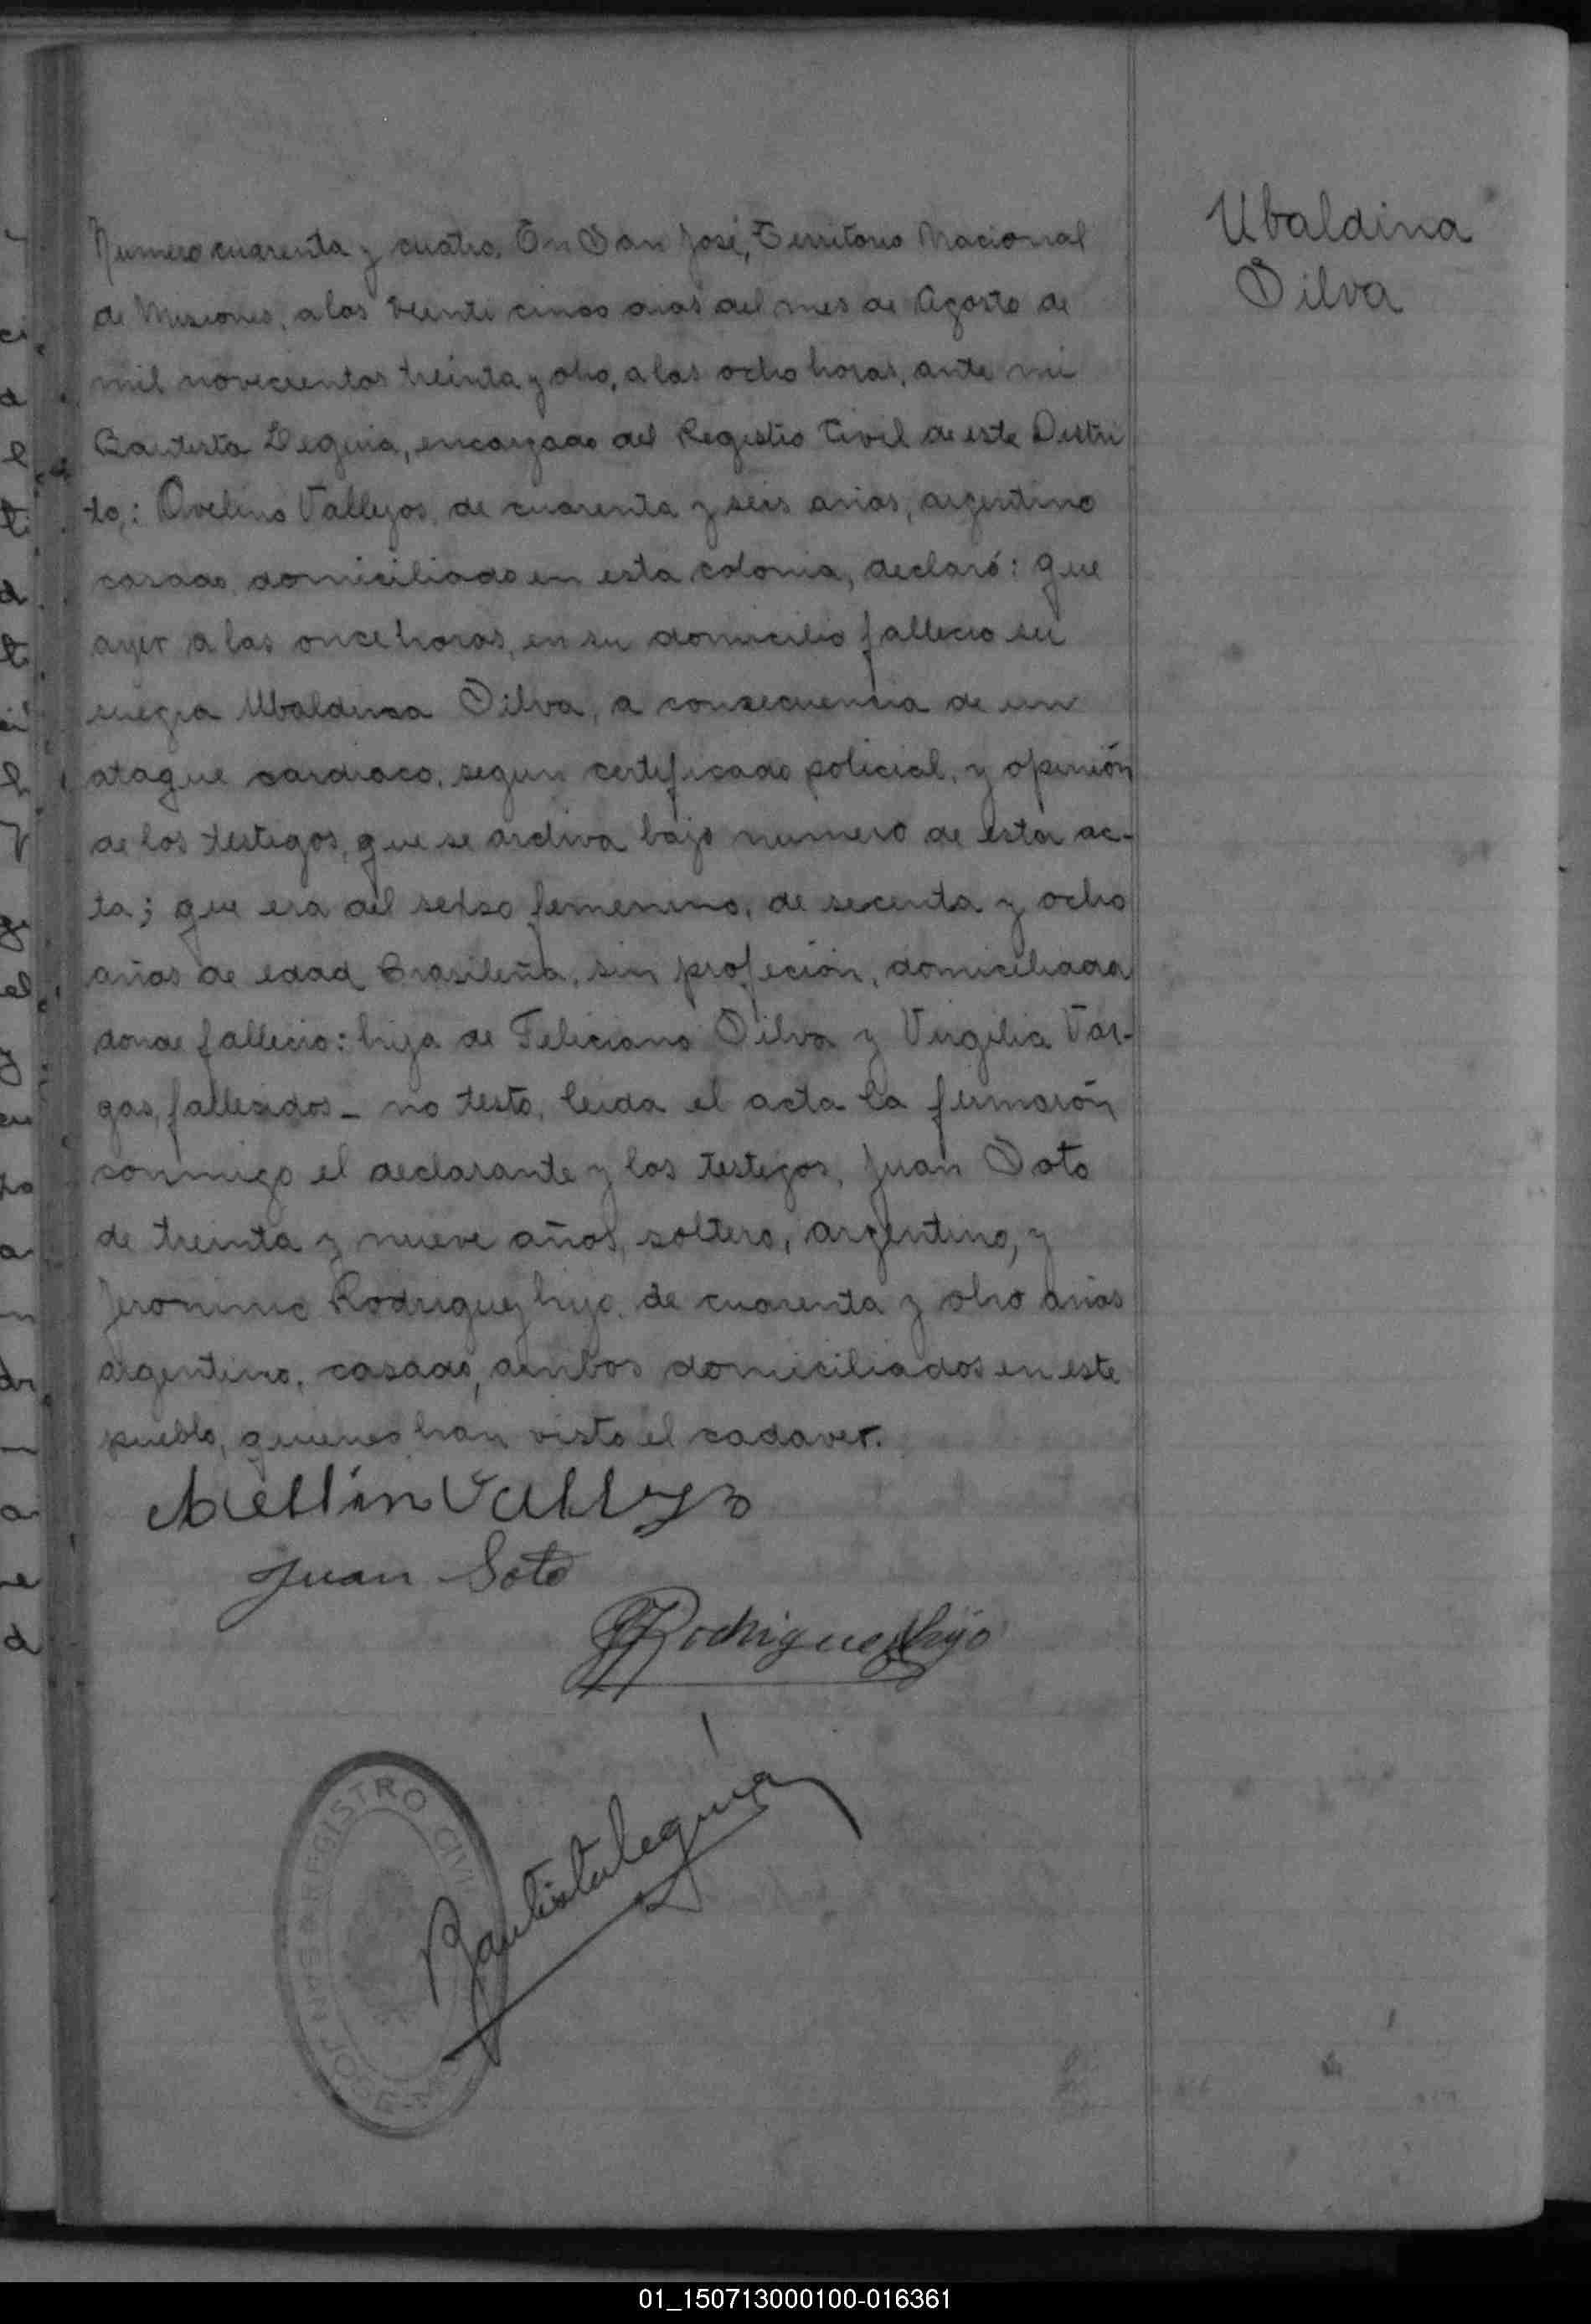 Ubaldina
Silva
Numero cuarenta y cuatro. En San José, Territorio Nacional
de Misiones, a los veinte cinco dias del mes de Agosto de
mil novecientos treinta y oho, a las ocho horas, ante mi
Bautista Leguia, encargado del Registro Civil de este Distri
to,: Avelino Vallejos, de cuarenta y seis años, argentino
casado, domiciliado en esta colonia, declaró: que
ayer a las once horas, en su domicilio fallecio su
suegra Ubaldina Silva, a consecuencia de un
ataque cardiaco, segun certificado policial, y opinión
de los testigos, que se archiva bajo numero de esta ac-
ta; que era del sexso femenino, de secenta y ocho
años de edad Brasileña, sin profeción, domiciliada
donde fallecio: hija de Feliciano Silva y Virgilia Var-
gas, fallecidos - no testo, leida el acta la firmarón
conmigo el declarante y los testigos, Juan Soto
de treinta y nueve años, soltero, argentino, y
Jeronimo Rodriguez hijo, de cuarenta y oho años
argentino, casado, ambos domiciliados en este
pueblo, quienes han visto el cadaver.
Vallejo
Juan Soto
JRodriguez hijo
Bautista Leguia
REGISTRO CIVIL
SAN JOSE
01_150713000100-016361